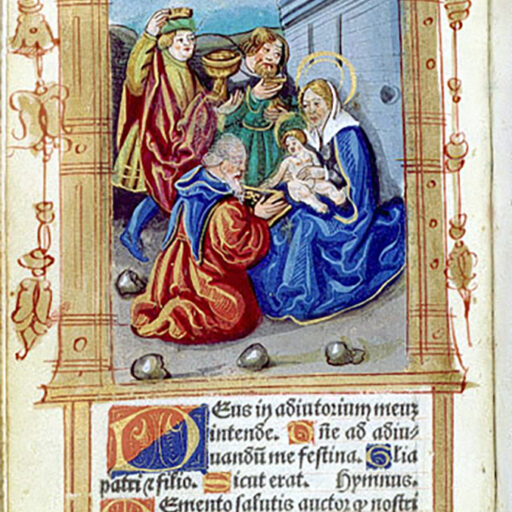 Deus in adiutorium meuʒ
intende. Dñe ad adiu⸗
uandū me festina. Glia
patri ⁊ filio. Sicut erat. Hymnus.
Memento salutis auctor ꝙ nostri